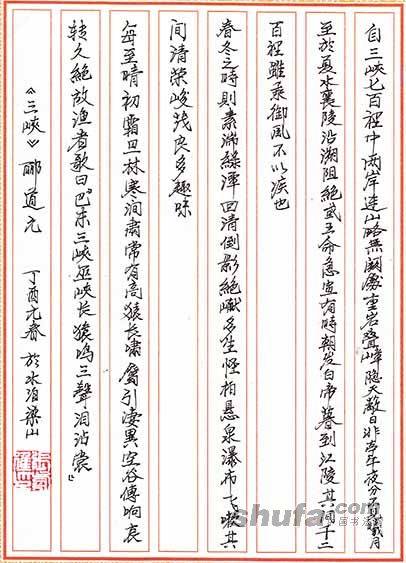 自三峡七百裡中两岸连山略無闕處重岩叠嶂隐天蔽日非亭午夜分不見曦月
至於夏水襄陵沿溯阻絶或王命急宣有時朝发白帝暮到江陵其间千二
百裡雖乘御風不以疾也
春冬之時則素湍緑潭回清倒影絶巘多生怪柏悬泉瀑布飞漱其
间清荣峻茂良多趣味
每至晴初霜旦林寒涧肃常有高猿长啸屬引凄異空谷傳响哀
转久絶故渔者歌曰“巴东三峡巫峡长猿鸣三聲泪沾裳”
《三峡》 郦道元 丁酉元春 於水泊梁山
shufa.com